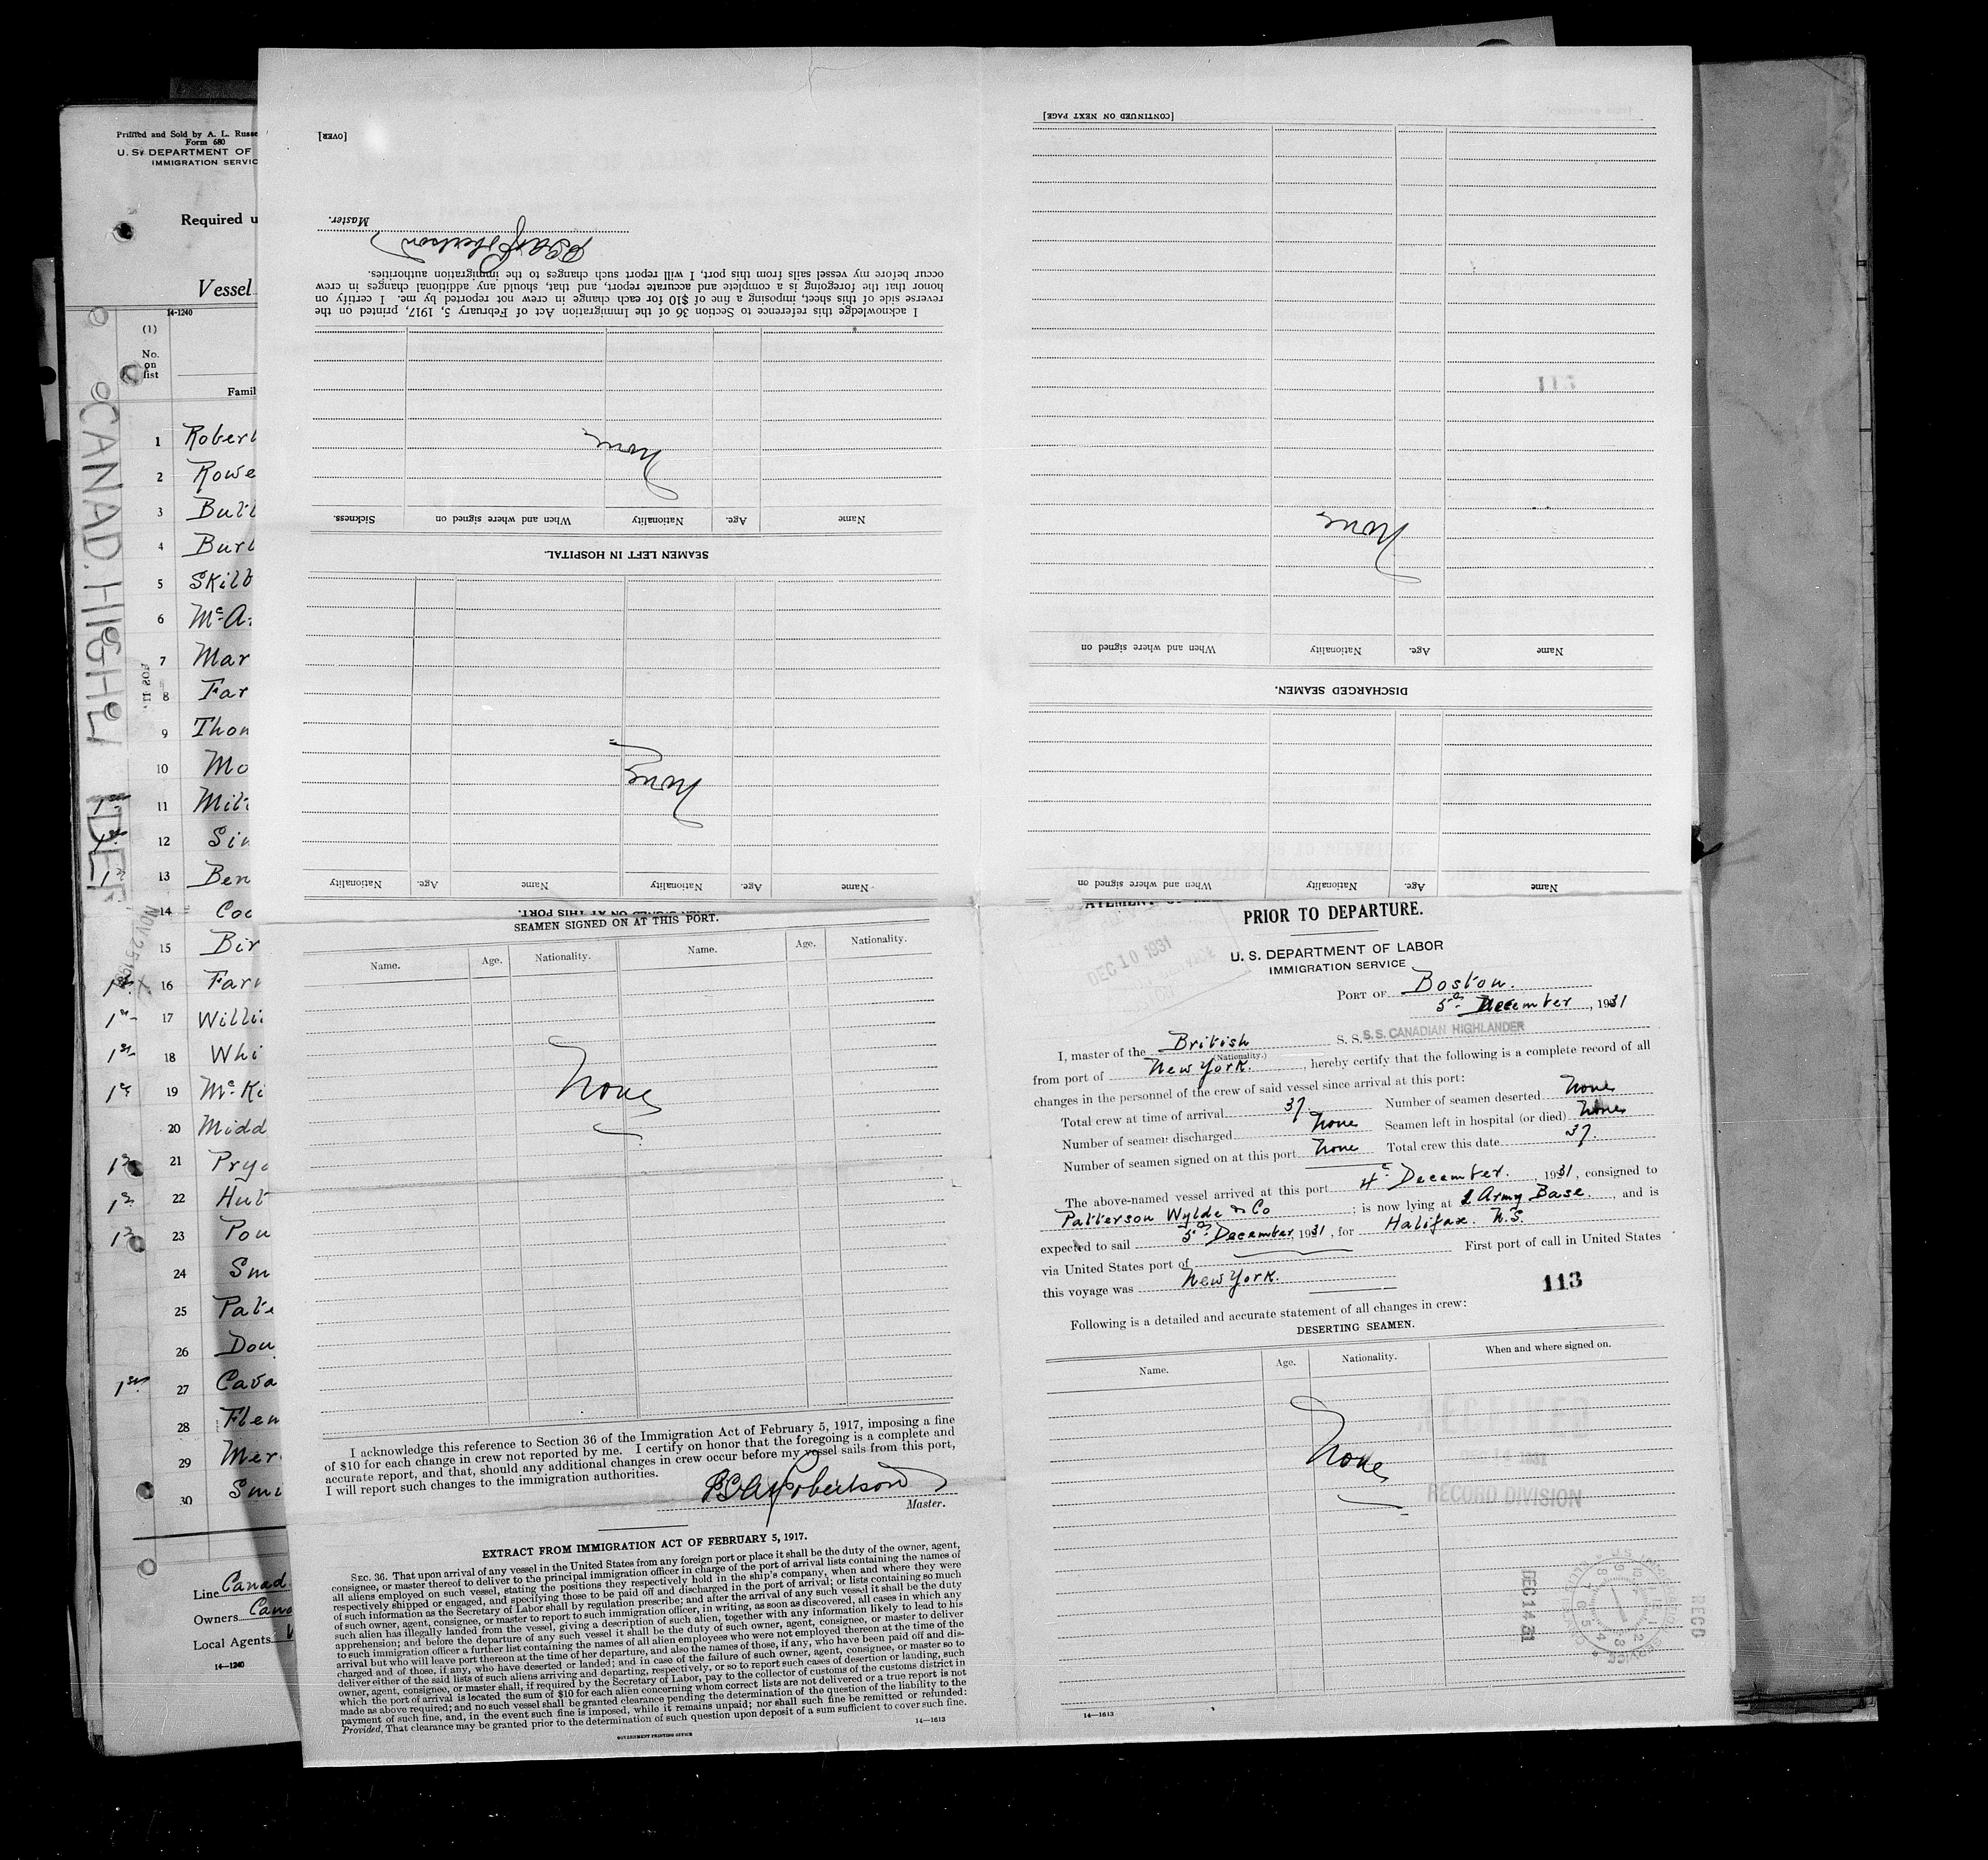 Printed and Sold by A. L. Russe
Form 680
U. S. DEPARTMENT OF
IMMIGRATION SERVIC
Required u
Vessel
14-1240
(1)
No.
on
list
Famil
CANAD. HIGHL DER
1 Robert
2 Rowe
3 Butt
4 Burt
5 Skilb
6 Mc A
7 Mar
8 Far
9 Thom
10 Mo
11 Milt
12 Sin
13 Ben
14 Coo
15 Bir
16 Farr
17 Willi
18 Whi
19 Mc Ki
20 Midd
21 Pryc
22 Hut
23 Pou
24 Sm
25 Pate
26 Dou
27 Cava
28 Flem
29 Mer
30 Smi
Line Canad
Owners Cana
Local Agents
14—1240
[OVER]
Master.
Robertson
I acknowledge this reference to Section 36 of the Immigration Act of February 5, 1917, printed on the
reverse side of this sheet, imposing a fine of $10 for each change in crew not reported by me. I certify on
honor that the foregoing is a complete and accurate report, and that, should any additional changes in crew
occur before my vessel sails from this port, I will report such changes to the immigration authorities.
None
Name Age. Nationality When and where signed on Sickness.
SEAMEN LEFT IN HOSPITAL.
None
Name Age. Nationality Name Age. Nationality
SEAMEN SIGNED ON AT THIS PORT.
[CONTINUED ON NEXT PAGE]
None
Name Age. Nationality When and where signed on
DISCHARGED SEAMEN.
Name Age. Nationality When and where signed on
SEAMEN SIGNED ON AT THIS PORT.
Name. Age. Nationality. Name. Age. Nationality.
None
I acknowledge this reference to Section 36 of the Immigration Act of February 5, 1917, imposing a fine
of $10 for each change in crew not reported by me. I certify on honor that the foregoing is a complete and
accurate report, and that, should any additional changes in crew occur before my vessel sails from this port,
I will report such changes to the immigration authorities.
Robertson
Master.
EXTRACT FROM IMMIGRATION ACT OF FEBRUARY 5, 1917.
SEC. 36. That upon arrival of any vessel in the United States from any foreign port or place it shall be the duty of the owner, agent,
consignee, or master thereof to deliver to the principal immigration officer in charge of the port of arrival lists containing the names of
all aliens employed on such vessel, stating the positions they respectively hold in the ship's company, when and where they were
respectively shipped or engaged, and specifying those to be paid off and discharged in the port of arrival; or lists containing so much
of such information as the Secretary of Labor shall by regulation prescribe; and after the arrival of any such vessel it shall be the duty
of such owner, agent, consignee, or master to report to such immigration officer, in writing, as soon as discovered, all cases in which any
such alien has illegally landed from the vessel, giving a description of such alien, together with any information likely to lead to his
apprehension; and before the departure of any such vessel it shall be the duty of such owner, agent, consignee, or master to deliver
to such immigration officer a further list containing the names of all alien employees who were not employed thereon at the time of the
arrival but who will leave port thereon at the time of her departure, and also the names of those, if any, who have been paid off and dis-
charged and of those, if any, who have deserted or landed; and in case of the failure of such owner, agent, consignee, or master so to
deliver either of the said lists of such aliens arriving and departing, respectively, or so to report such cases of desertion or landing, such
owner, agent, consignee, or master shall, if required by the Secretary of Labor, pay to the collector of customs of the customs district in
which the port of arrival is located the sum of $10 for each alien concerning whom correct lists are not delivered or a true report is not
made as above required; and no such vessel shall be granted clearance pending the determination of the question of the liability to the
payment of such fine, and, in the event such fine is imposed, while it remains unpaid; nor shall such fine be remitted or refunded:
Provided, That clearance may be granted prior to the determination of such question upon deposit of a sum sufficient to cover such fine.
14—1613
GOVERNMENT PRINTING OFFICE
PRIOR TO DEPARTURE.
DEC 10 1931
U. S. DEPARTMENT OF LABOR
IMMIGRATION SERVICE
PORT OF Boston.
5th December, 1931
I, master of the British S. S. S.S. CANADIAN HIGHLANDER
(Nationality.)
from port of New York., hereby certify that the following is a complete record of all
changes in the personnel of the crew of said vessel since arrival at this port:
Total crew at time of arrival 37 Number of seamen deserted None
Number of seamen discharged None Seamen left in hospital (or died) None
Number of seamen signed on at this port None Total crew this date 37.
The above-named vessel arrived at this port 4th December. 1931, consigned to
Patterson Wylde & Co ; is now lying at 1 Army Base., and is
expected to sail 5th December, 1931, for Halifax. N.S.
via United States port of First port of call in United States
this voyage was New York.
113
Following is a detailed and accurate statement of all changes in crew:
DESERTING SEAMEN.
Name. Age. Nationality. When and where signed on.
None
RECEIVED
RECORD DIVISION
DEC 14 31
REC'D
14—1613